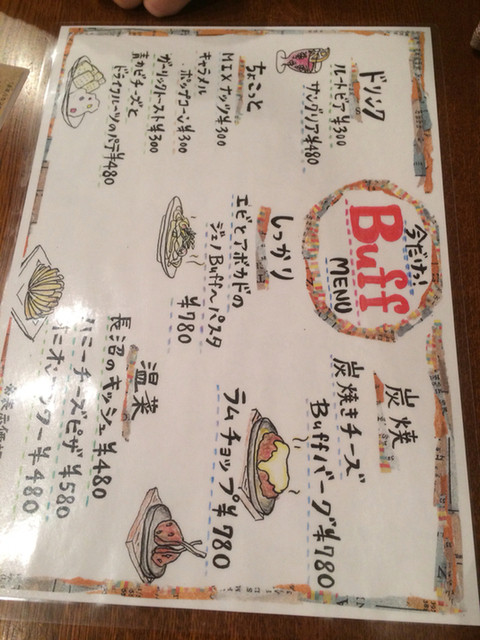 今だけっ!
Buff
MENU
ドリンク
ルートビア¥300
サングリア¥480
ちょこっと
MIXナッツ¥300
キャラメル
ポップコーン¥300
ガーリックトースト¥300
青カビチーズと
ドライフルーツのパテ¥480
しっかり
エビとアボカドの
ジェノBuffeパスタ
¥780
炭焼
炭焼きチーズ
Buffバーグ¥780
ラムチョップ¥780
温菜
長沼のキッシュ¥480
ハニーチーズピザ¥580
オニオンフラワー¥480